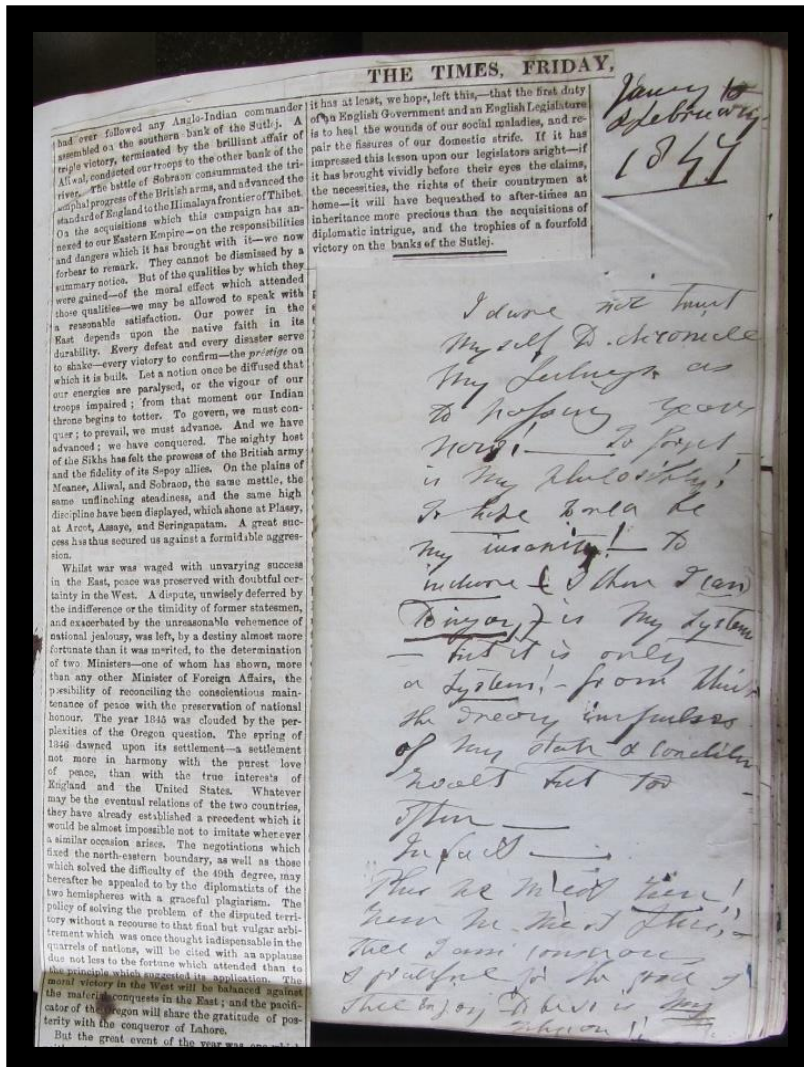 THE TIMES, FRIDAY,
had ever followed any Anglo-Indian commander
assembled on the southern bank of the Sutlej. A
triple victory, terminated by the brilliant affair of
Aliwal, conducted our troops to the other bank of the
river. The battle of Sobraon consummated the tri-
umphal progress of the British arms, and advanced the
standard of England to the Himalaya frontier of Thibet.
On the acquisitions which this campaign has an-
nexed to our Eastern Empire—on the responsibilities
and dangers which it has brought with it—we now
forbear to remark. They cannot be dismissed by a
summary notice. But of the qualities by which they
were gained—of the moral effect which attended
those qualities—we may be allowed to speak with
a reasonable satisfaction. Our power in the
East depends upon the native faith in its
durability. Every defeat and every disaster serve
to shake—every victory to confirm—the prestige on
which it is built. Let a notion once be diffused that
our energies are paralysed, or the vigour of our
troops impaired; from that moment our Indian
throne begins to totter. To govern, we must con-
quer; to prevail, we must advance. And we have
advanced; we have conquered. The mighty host
of the Sikhs has felt the prowess of the British army
and the fidelity of its Sepoy allies. On the plains of
Meanee, Aliwal, and Sobraon, the same mettle, the
same unflinching steadiness, and the same high
discipline have been displayed, which shone at Plassy,
at Arcot, Assaye, and Seringapatam. A great suc-
cess has thus secured us against a formidable aggres-
sion.
Whilst war was waged with unvarying success
in the East, peace was preserved with doubtful cer-
tainty in the West. A dispute, unwisely deferred by
the indifference or the timidity of former statesmen,
and exacerbated by the unreasonable vehemence of
national jealousy, was left, by a destiny almost more
fortunate than it was merited, to the determination
of two Ministers—one of whom has shown, more
than any other Minister of Foreign Affairs, the
possibility of reconciling the conscientious main-
tenance of peace with the preservation of national
honour. The year 1845 was clouded by the per-
plexities of the Oregon question. The spring of
1846 dawned upon its settlement—a settlement
not more in harmony with the purest love
of peace, than with the true interests of
England and the United States. Whatever
may be the eventual relations of the two countries,
they have already established a precedent which it
would be almost impossible not to imitate whenever
a similar occasion arises. The negotiations which
fixed the north-eastern boundary, as well as those
which solved the difficulty of the 49th degree, may
hereafter be appealed to by the diplomatists of the
two hemispheres with a graceful plagiarism. The
policy of solving the problem of the disputed terri-
tory without a recourse to that final but vulgar arbi-
trement which was once thought indispensable in the
quarrels of nations, will be cited with an applause
due not less to the fortune which attended than to
the principle which suggested its application. The
moral victory in the West will be balanced against
the material conquests in the East; and the pacifi-
cator of the Oregon will share the gratitude of pos-
terity with the conqueror of Lahore.
But the great event of the year was one which
it has at least, we hope, left this,—that the first duty
of an English Government and an English Legislature
is to heal the wounds of our social maladies, and re-
pair the fissures of our domestic strife. If it has
impressed this lesson upon our legislators aright—if
it has brought vividly before their eyes the claims,
the necessities, the rights of their countrymen at
home—it will have bequeathed to after-times an
inheritance more precious than the acquisitions of
diplomatic intrigue, and the trophies of a fourfold
victory on the banks of the Sutlej.
to
February
1847
I dare not trust
myself to chronicle
my feelings as
to passing years
now! — To forget
is my philosophy!
To be
my insanity! — To
(I then I can
) is my system
— but it is only
a system! — from
the dreary impulses
of my state & condition
revolt but too
often —
In fact —
then!
I am conscious
& grateful for the good
is my
religion!!